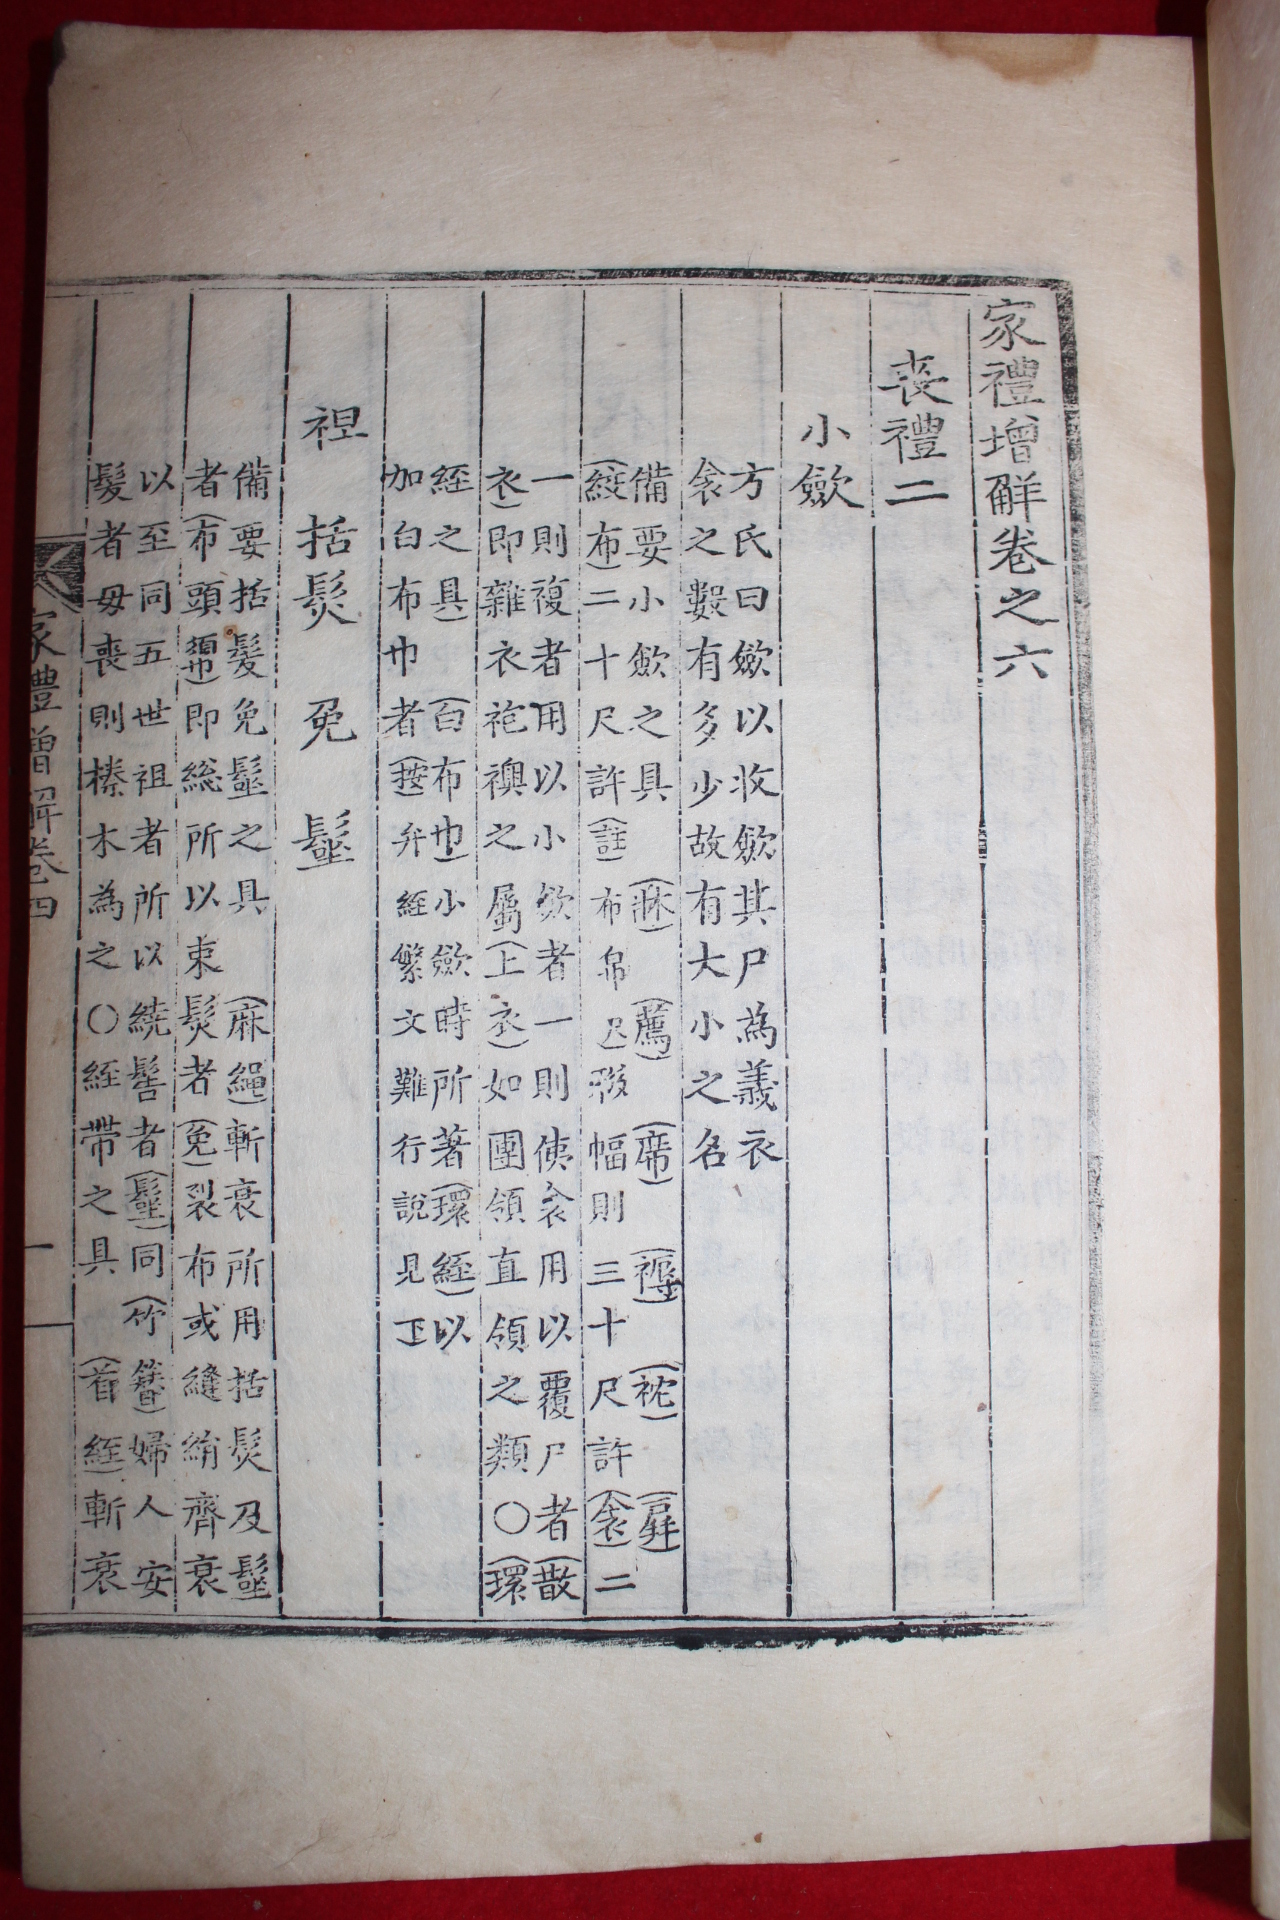 家禮增解卷之六
喪禮二
小斂
方氏曰斂以收斂其尸為義衣
衾之數有多少故有大小之名
備要小斂之具(牀)(薦)(席)(褥)(枕)(屛)
(絞)布二十尺許(註)布帛尺狹幅則三十尺許(衾)二
一則複者用以小斂者一則俠衾用以覆尸者(散
衣)即雜衣袍襖之屬(上衣)如團領直領之類○(環
絰之具)(白布巾)小斂時所著(環絰)以
加白布巾者(按)弁絰繁文難行說見下
袒 括髮 免 髽
備要括髮免髽之具(麻繩)斬衰所用括髮及髽
者(布頭𢄼)即緫所以束髮者(免)裂布或縫絹齊衰
以至同五世祖者所以繞髻者(髽)同(竹簪)婦人安
髮者毋喪則榛木為之○絰帶之具(首絰)斬衰
家禮增解卷四
一